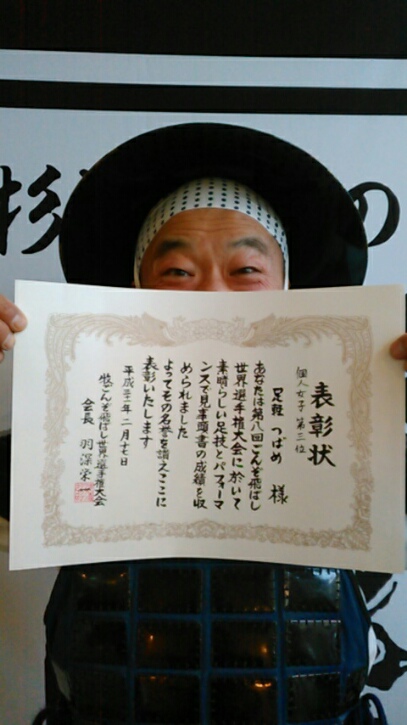 杉
の
表彰状
個人女子 第三位
足軽 つばめ 様
あなたは第八回ごんぞ飛ばし
世界選手権大会に於いて
素晴らしい足技とパフォーマ
ンスで見事頭書の成績を収
められました
よってその名誉を讃えここに
表彰いたします
平成三十一年二月十七日
ごんぞ飛ばし世界選手権大会
会長 羽深栄一